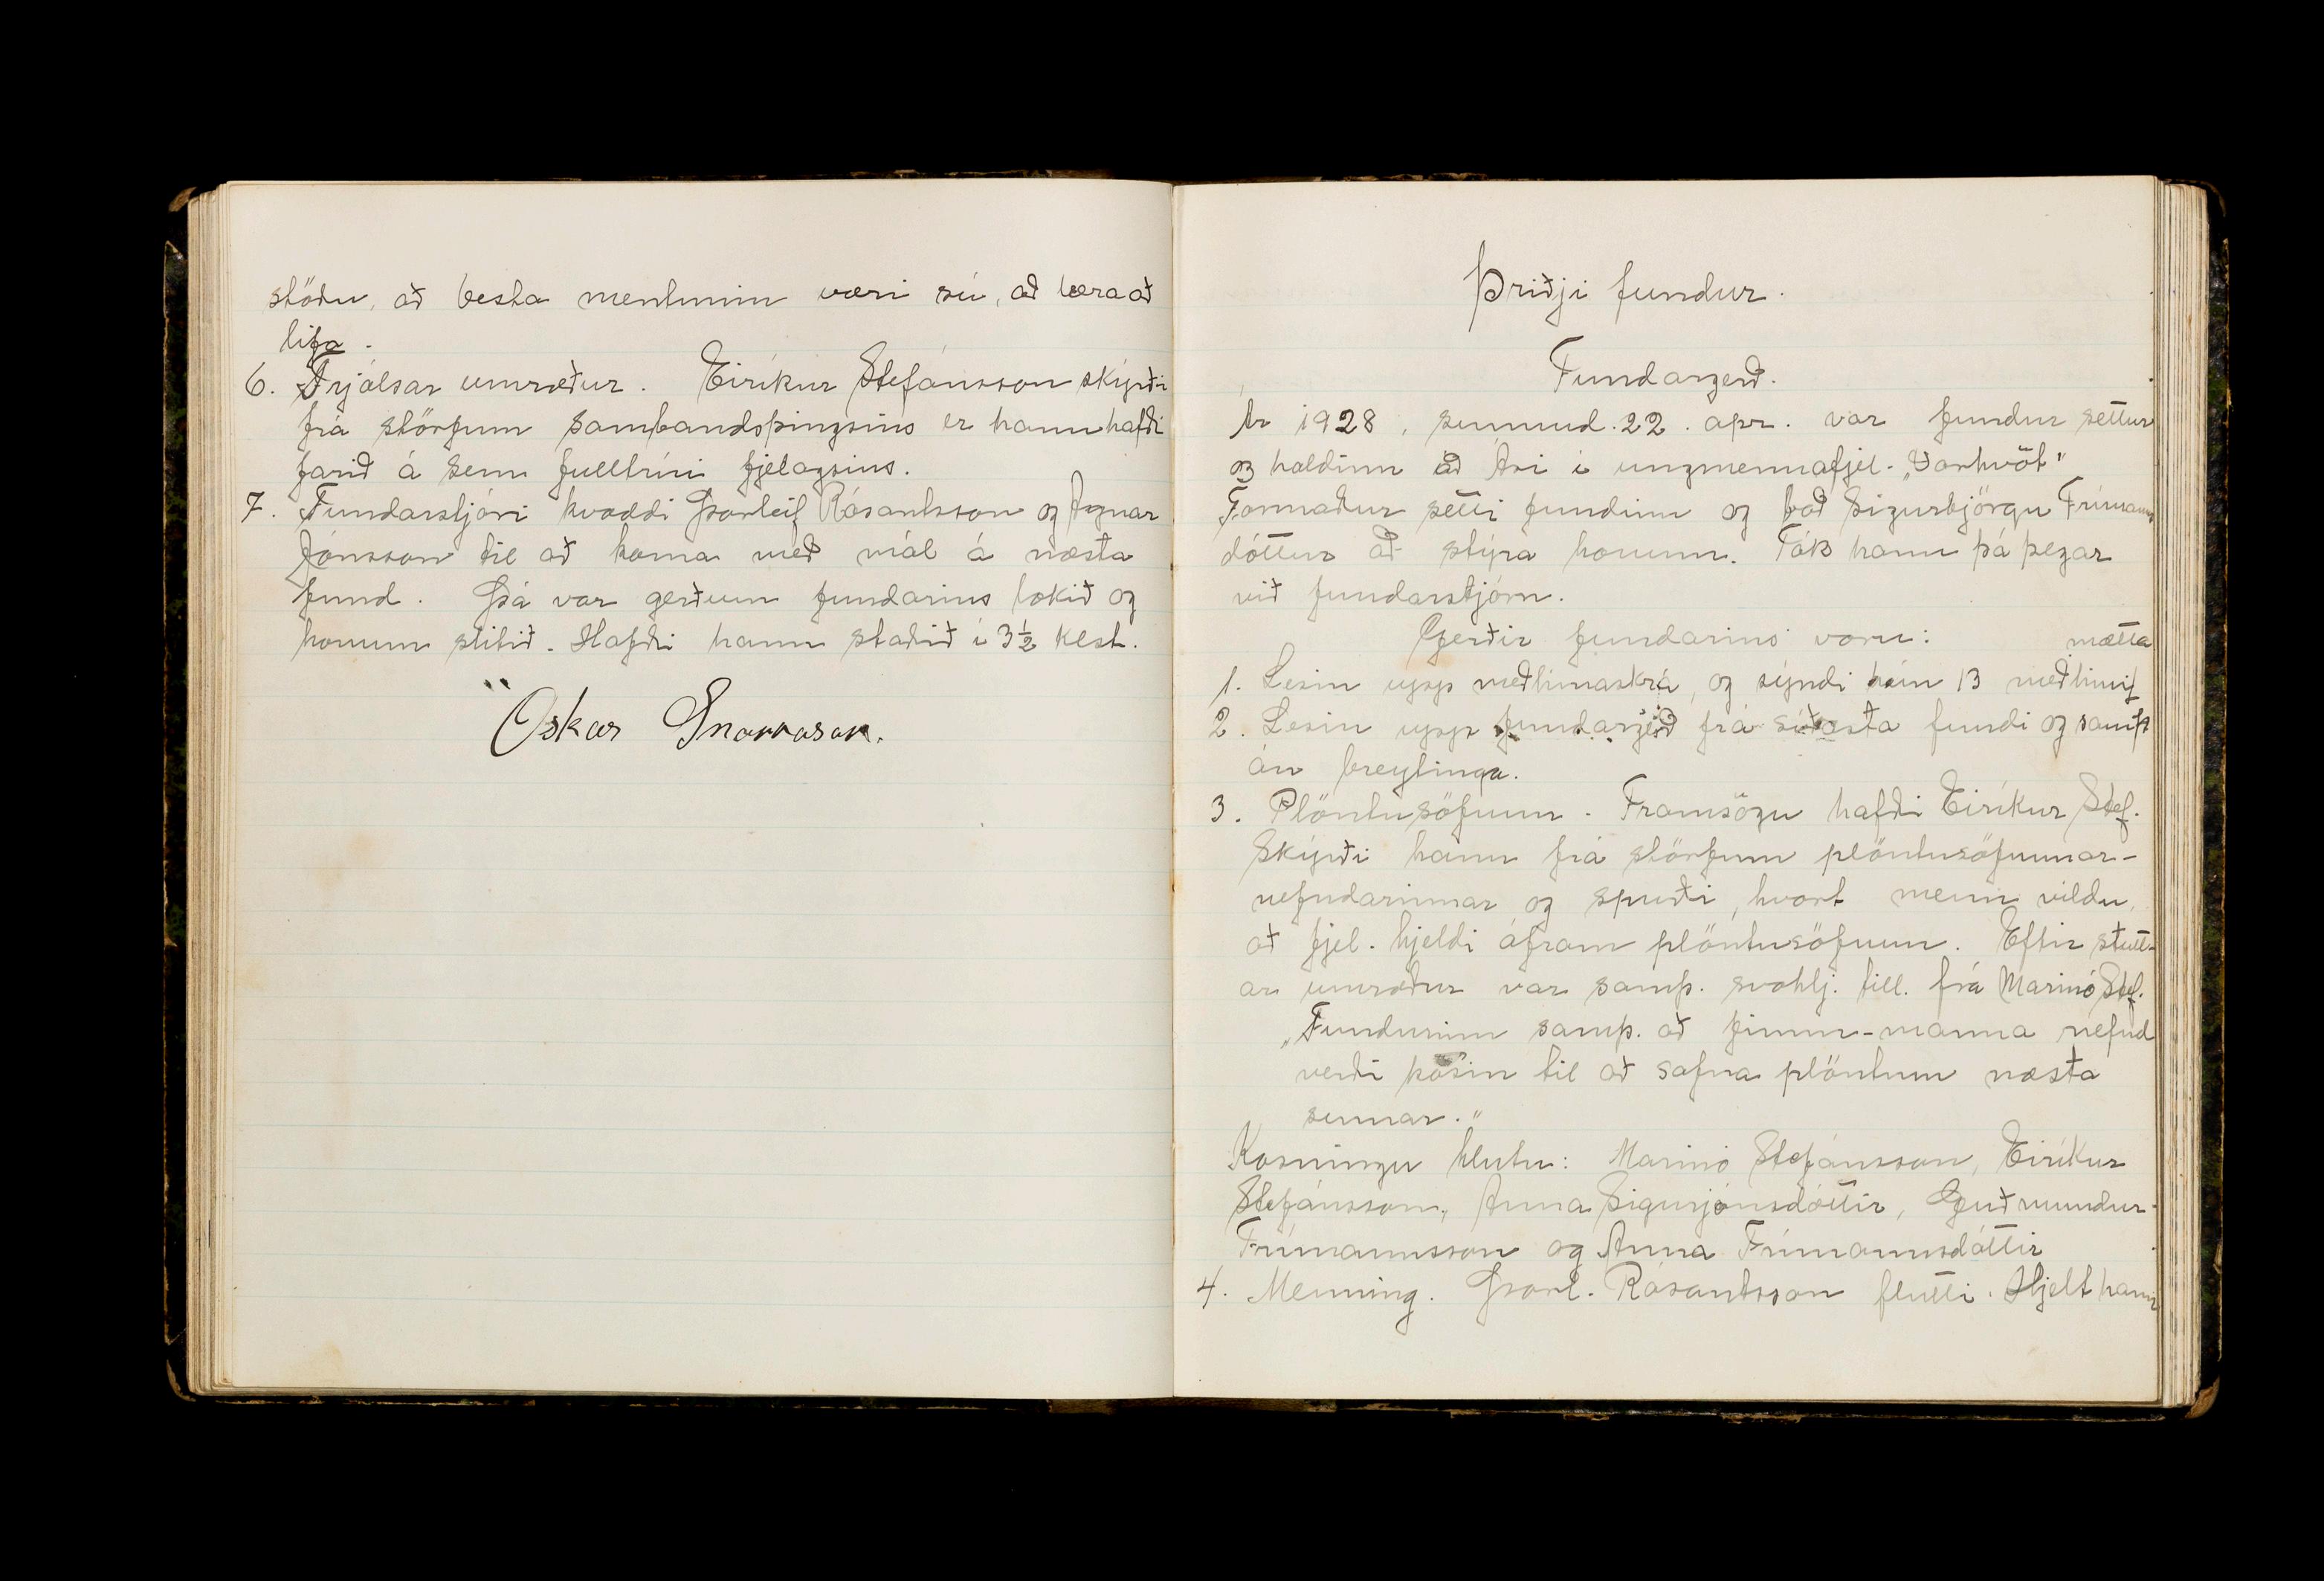 stöðu, að besta mentunin væri sú, að læra að
lifa.
6. Frjálsar umræður. Eiríkur Stefánsson skýrði
frá störfum sambandsþingsins er hann hafði
farið á sem fulltrúi fjelagsins.
7. Fundarstjóri kvaddi Þorleif Rósantsson og Agnar
Jónsson til að koma með mál á næsta
fund. Þá var gerðum fundarins lokið og
honum slitið. Hafði hann staðið í 3½ klst.
Óskar Snorrason.
Þriðji fundur.
Fundargerð.
Ár 1928, sunnud. 22. apr. var fundur settur
og haldinn að Ási í ungmennafjel. „Vorhvöt"
Formaður setti fundinn og bað Sigurbjörgu Frímanns
dóttur að stýra honum. Tók hann þá þegar
við fundarstjórn.
Gerðir fundarins voru:
mætta
1. Lesin upp meðlimaskrá, og sýndi hún 13 meðlimi
2. Lesin upp fundargjerð frá síðasta fundi og samþ
án breytinga.
3. Plöntusöfnun. Framsögu hafði Eiríkur Stef.
Skýrði hann frá störfum plöntusöfnunar-
nefndarinnar og spurði, hvort menn vildu,
að fjel. hjeldi áfram plöntusöfnun. Eftir stutt-
ar umræður var samþ. svohlj. till. frá Marinó Stef.
„Fundurinn samþ. að fimm-manna nefnd
verði kosin til að safna plöntum næsta
sumar."
Kosningu hlutu: Marinó Stefánsson, Eiríkur
Stefánsson, Anna Sigurjónsdóttir, Guðmundur
Frímannsson og Anna Frímannsdóttir
4. Menning. Þorl. Rósantsson flutti. Hjelt hann